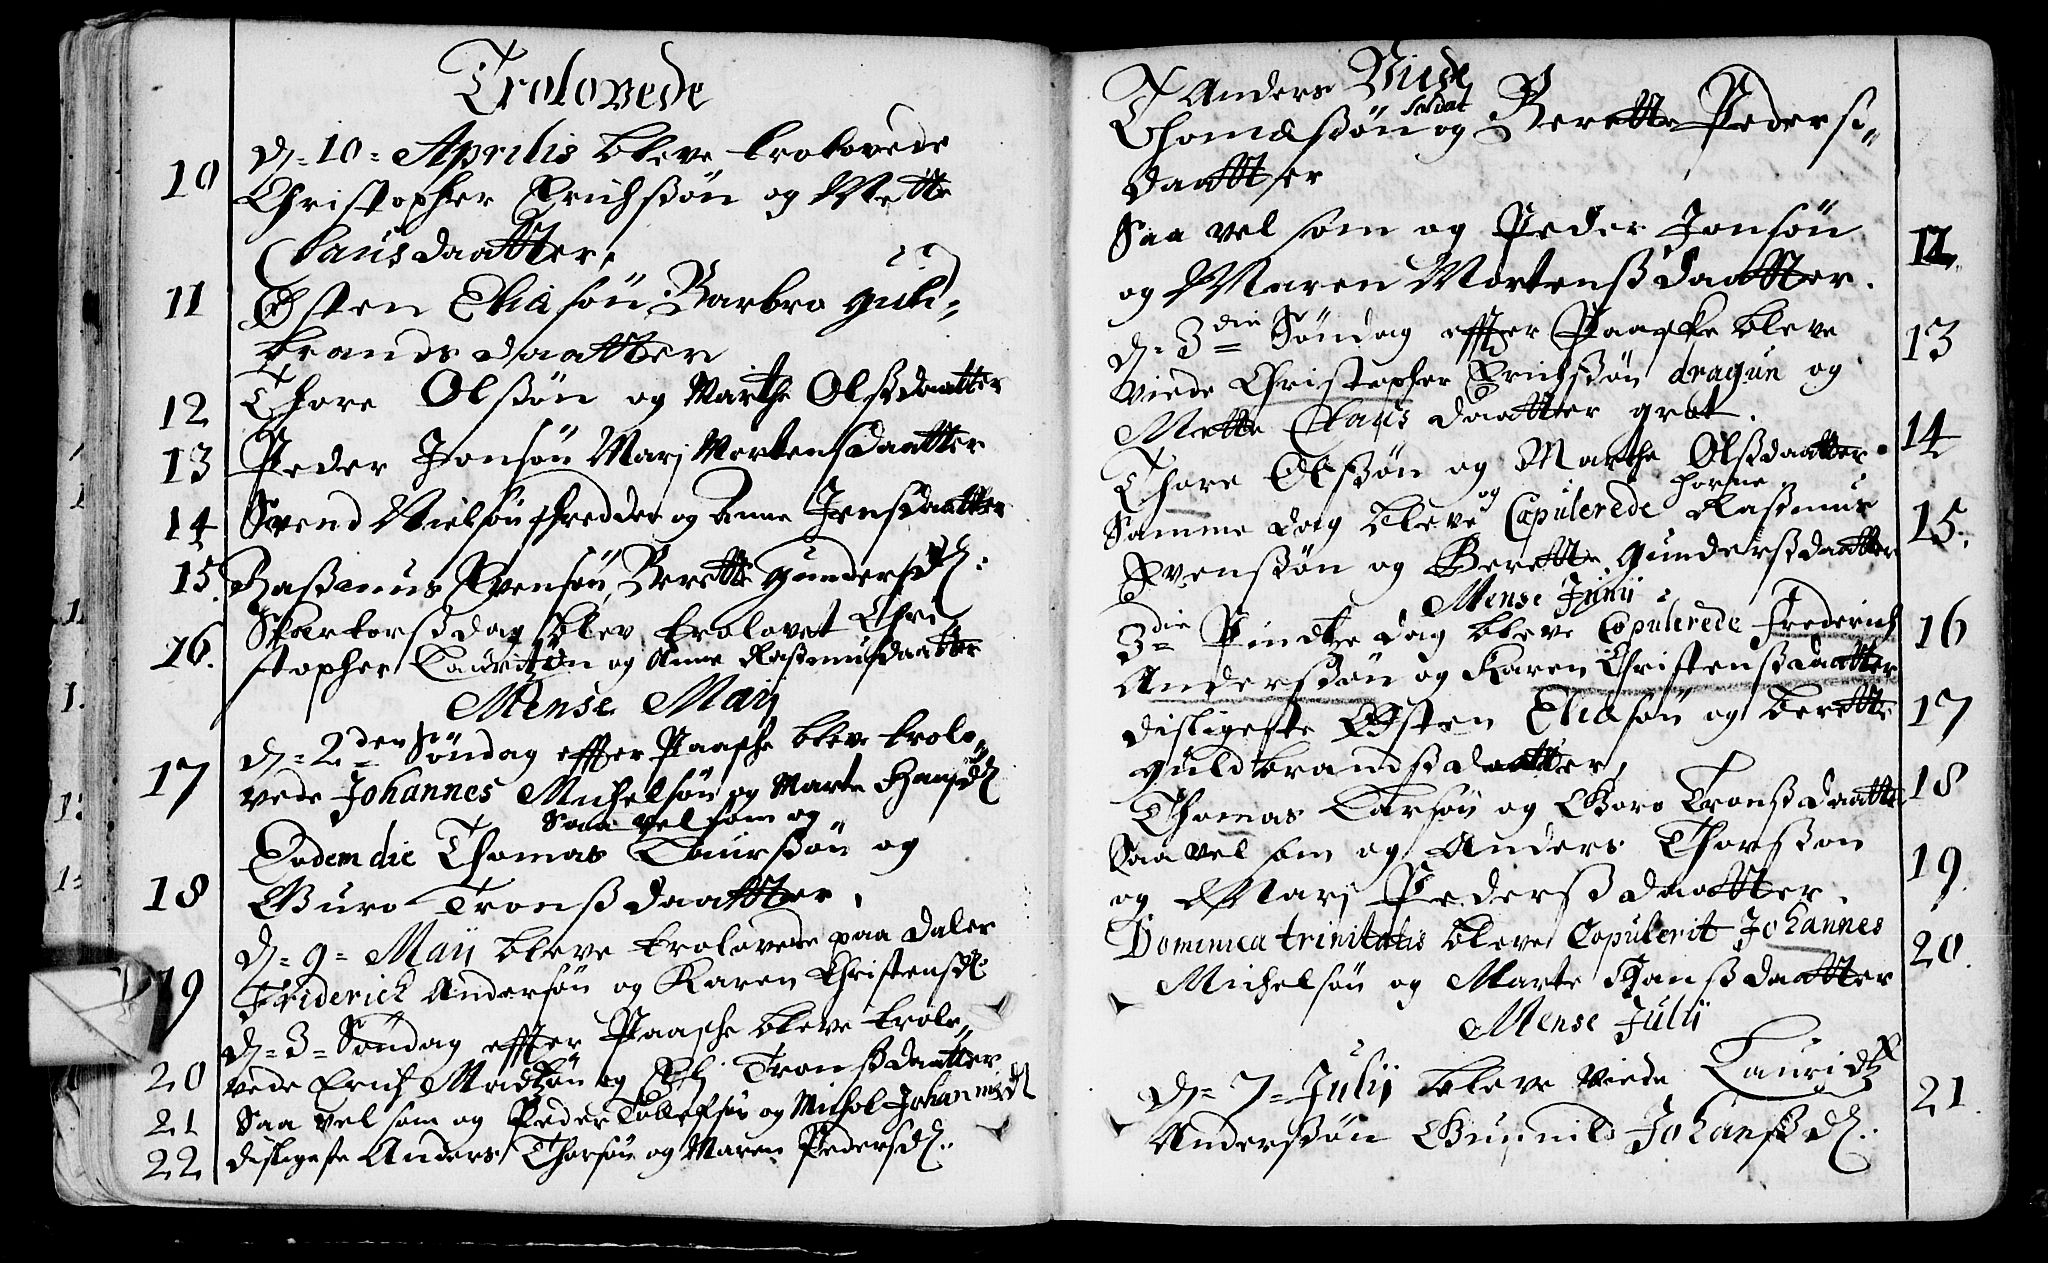 Trolovede
10 d. 10 Aprilis bleve trolovede
Christopher Erichssøn og Mette
Clausdaatter.
11 Østen Eliasøn Barbro Guld-
brandsdaatter
12 Thore Olssøn og Marthe Olsdaatter
13 Peder Jonsøn Marj Mortensdaatter
14 Svend Nielsøn og Anne Jensdaatter
15. Rasmus Svensøn, Berette Gundersd:
Blev trolovet Chri-
16. stopher Lauritzøn og Anne Rasmusdaatter
Mense Maij
d. 2den Søndag effter Paasche bleve trolo-
17 vede Johannes Michelsøn og Marte Hansd
saa vel som og
Eodem die Thomas Laurssøn og
18 Guro Tronsdaatter.
d. 9 Maij bleve trolovede paa Daler
19 Friderich Andersøn og Karen Christensd:
d. 3 Søndag effter Paasche bleve trolo-
20 vede Erich Madtzøn og Tronsdaatter
21 Saa vel som og Peder Tollefsøn og Michol Johannisd
22 disligeste Anders Thorsøn og Maren Pedersd:
Viede
Anders
Soldat
Thomæssøn og Berette Peders-
daatter
Saa vel som og Peder Jonsøn 12
og Maren Mortensdaatter.
d. 3die Søndag effter Paaske bleve 13
viede Christopher Erichssøn dragun og
Mette Claus daatter grot.
Thore Olssøn og Marthe Olsdaatter. 14
horne
og
Samme dag bleve Copulerede Rasmus 15.
Svenssøn og Berette Gundersdaatter
Mense Junij
3die Pindtze dag bleve Copulerede Frederich 16
Anderssøn og Karen Christensdaatter
disligeste Østen Eliæsøn og Berette 17
Guldbrandsdaatter,
Thomas Larsøn og Goro Tronsdaatter 18
Saa vel som og Anders Thorssøn 19.
og Marj Pedersdaatter.
Dominica trinitatis bleve Copulerit Johannes 20.
Michelsøn og Marte Hansdaatter
Mense Julij
d. 7 Julij bleve viede Lauridtz 21.
Anderssøn Gunnild Johansd: